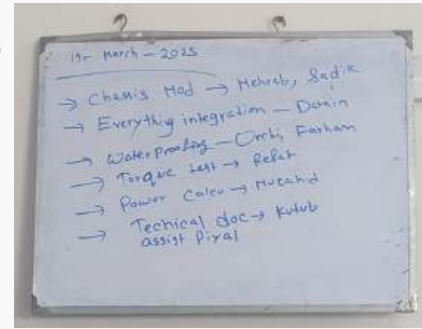 19- March - 2025
→ Chassis Mod → Mehrab, Sadik
→ Everything integration - Darain
→ Waterproofing - Orchi, Farham
→ Torque test → Refat
→ Power Calcu → Mucahid
→ Techical doc → Kutub
assist Piyal